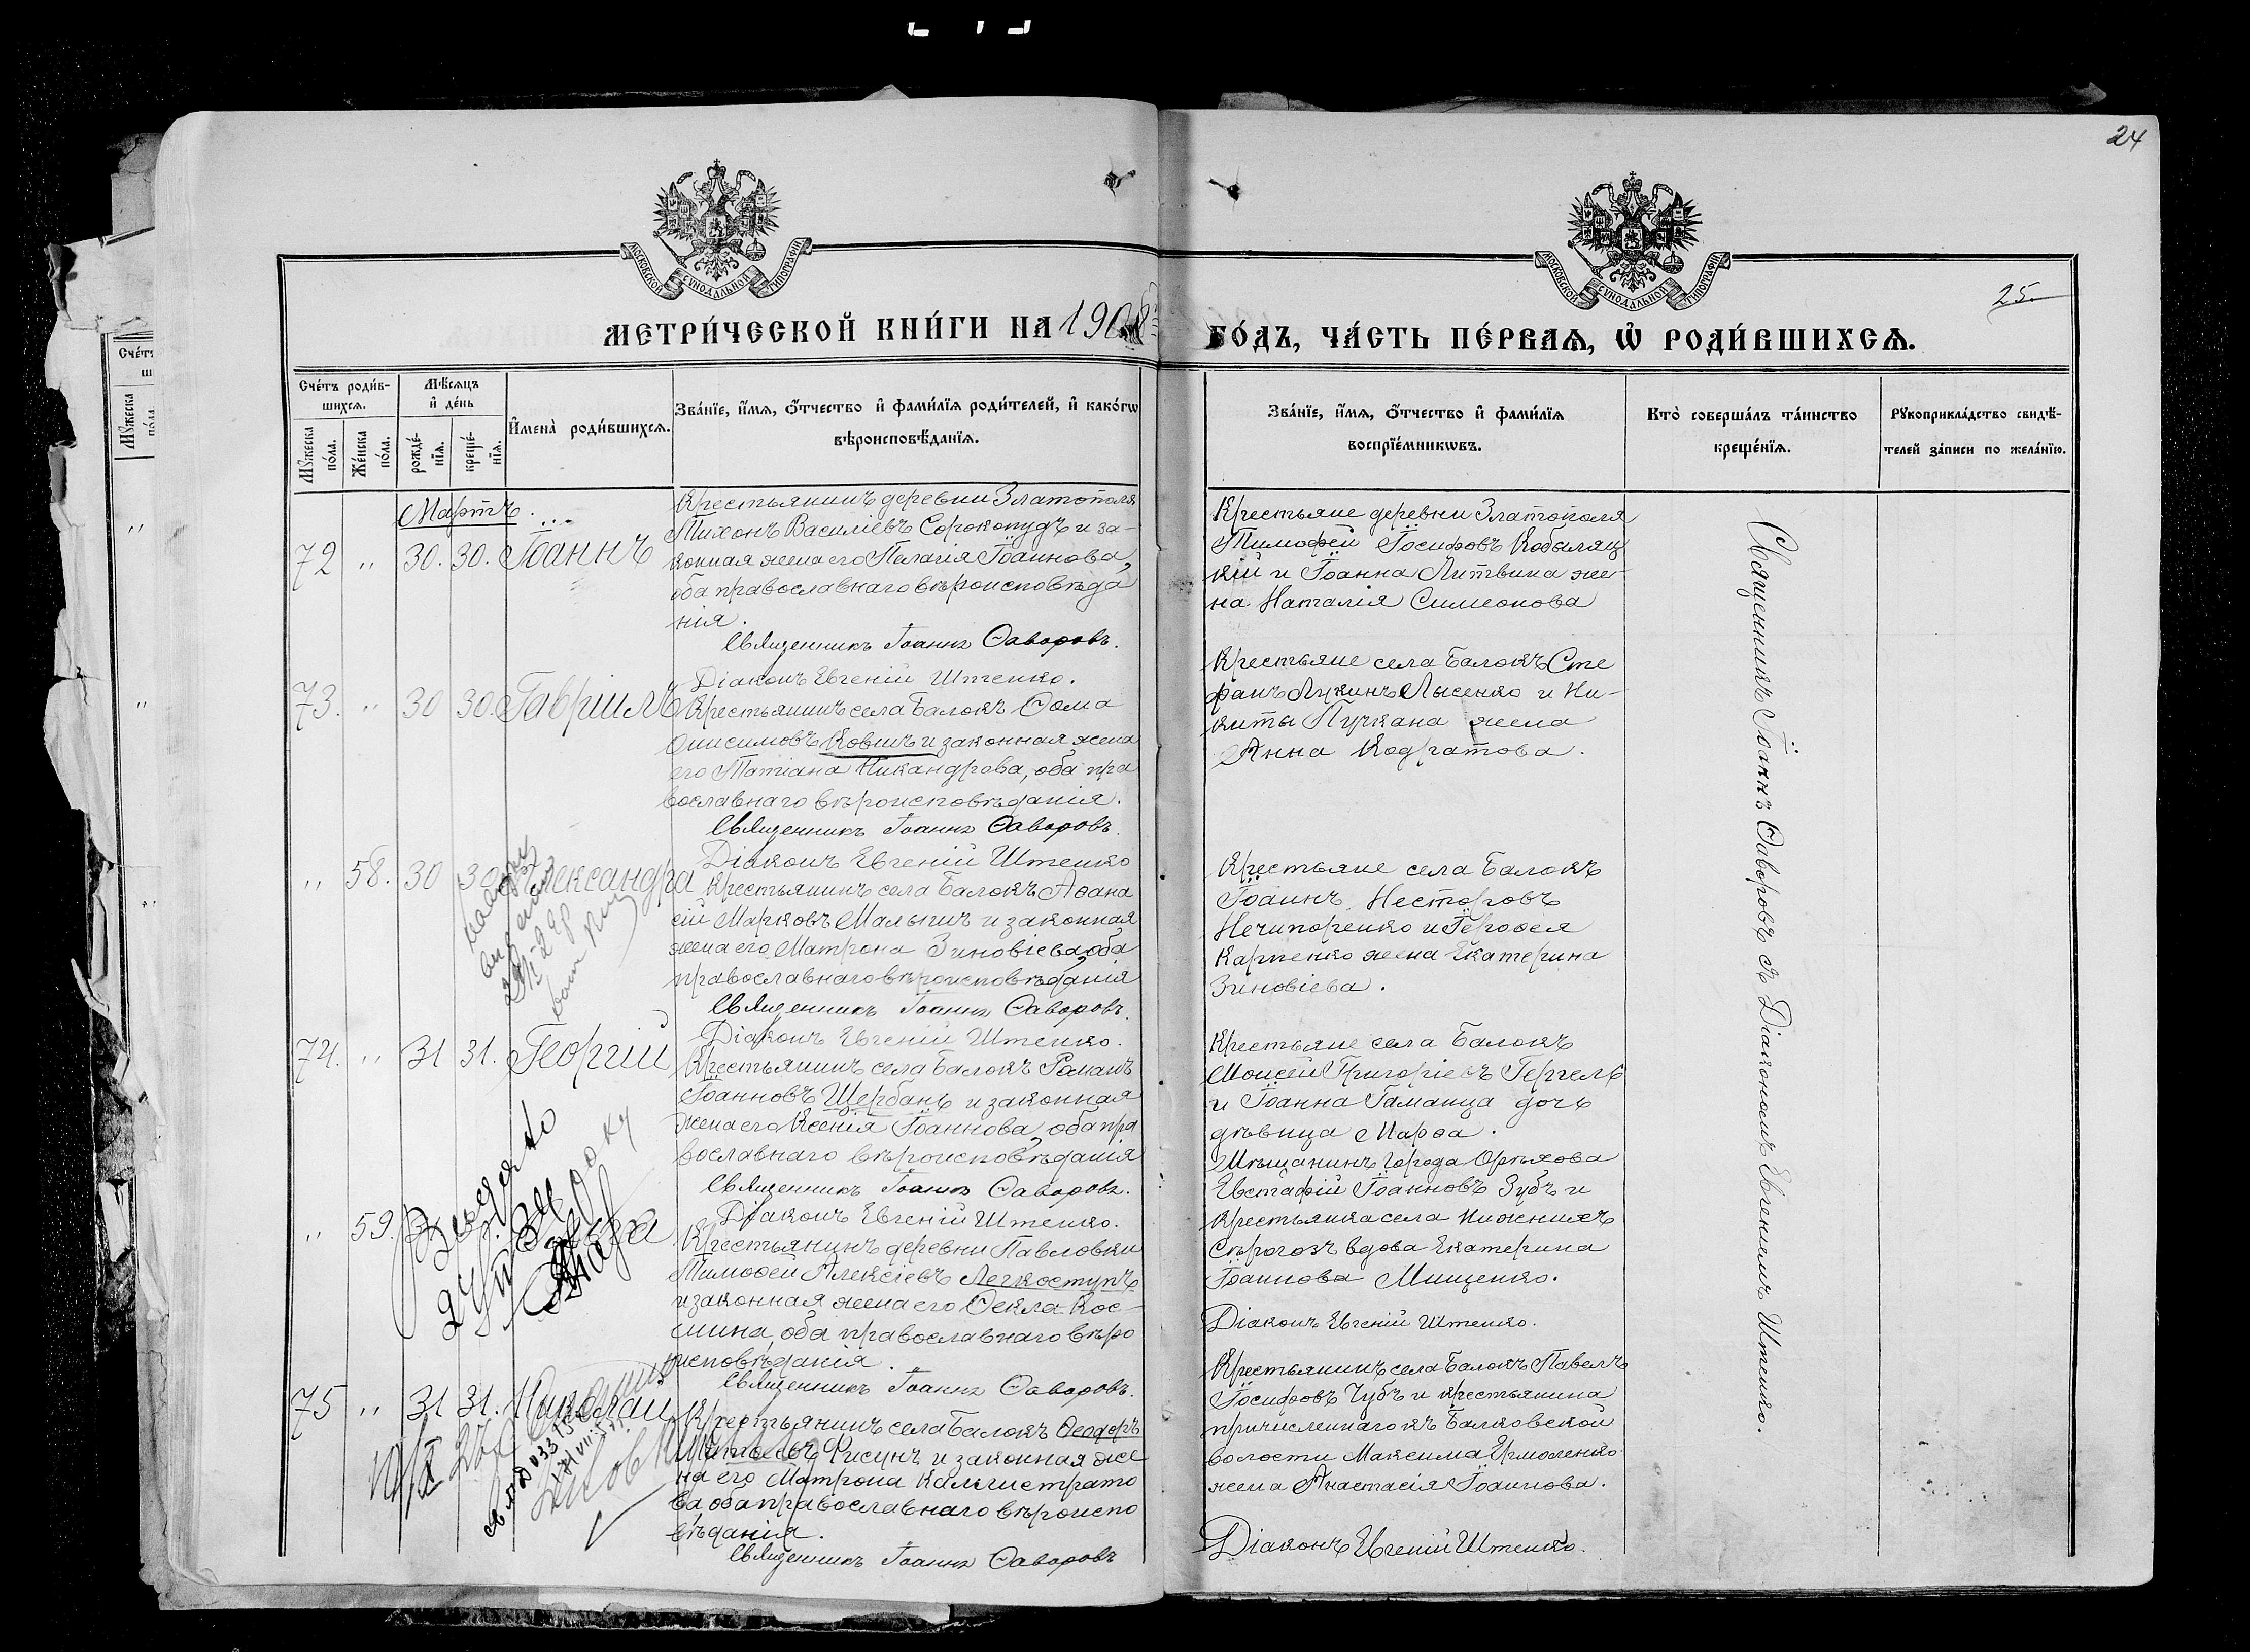 24
МОСКОВСКОЙ СУНОДАЛЬНОЙ ТИПОГРАФІИ
МОСКОВСКОЙ СУНОДАЛЬНОЙ ТИПОГРАФІИ
25.
МЕТРИ́ЧЕСКОЙ КНИ́ГИ НА 1908
ГО́ДЪ, ЧА́СТЬ ПЕ́РВАѦ, Ѡ҆ РОДИ́ВШИХСѦ.
Сче́тъ роди́в-
шихсѧ.
Мѣ́сѧцъ
и҆ де́нь
Мꙋжеска по́ла.
Же́нска по́ла.
рожде́-нїѧ.
креще́-нїѧ.
И҆мена̀ роди́вшихсѧ.
Зва́нїе, и҆́мѧ, ѻ҆́тчество и҆ фами́лїѧ роди́телей, и҆ како́гѡ
вѣроисповѣ́данїѧ.
Зва́нїе, и҆́мѧ, ѻ҆́тчество и҆ фами́лїѧ
воспрїе́мникѡвъ.
Кто̀ соверша́лъ та́инство
креще́нїѧ.
Рꙋкоприкла́дство свидѣ́-
телей за́писи по жела́нїю.
Мартъ.
72 " 30. 30. Іоаннъ
Крестьянинъ деревни Златополя
Тихонъ Василіевъ Сорокопудъ и за-
конная жена его Пелагія Іоаннова,
оба православнаго вѣроисповѣда
нія.
Священникъ Іоаннъ Ѳаворовъ.
Діаконъ Евгеній Штенко.
Крестьяне деревни Златополя
Тимофей Іосифовъ Кобыляц
кій и Іоанна Литвина же-
на Наталія Симеонова
73. " 30 30. Гавріилъ
Крестьянинъ села Балокъ Ѳома
Онисимовъ Ковшъ и законная жена
его Татіана Никандрова, оба пра
вославнаго вѣроисповѣданія.
Священникъ Іоаннъ Ѳаворовъ.
Діаконъ Евгеній Штенко
Крестьяне села Балокъ Сте
фанъ Лукинъ Лысенко и Ни-
киты Пуркана жена
Анна Кодратова.
" 58. 30 30 Александра
Крестьянинъ села Балокъ Аѳана
сій Марковъ Малышъ и законная
жена его Матрона Зиновіева, оба
православнаго вѣроисповѣданія
Священникъ Іоаннъ Ѳаворовъ.
Діаконъ Евгеній Штенко.
Крестьяне села Балокъ
Іоаннъ Несторовъ
Нечипоренко и Іероѳея
Карпенко жена Екатерина
Зиновіева.
74. " 31 31. Георгій
Крестьянинъ села Балокъ Романъ
Іоанновъ Щербань и законная
жена его Ксенія Іоаннова, оба пра
вославнаго вѣроисповѣданія
Священникъ Іоаннъ Ѳаворовъ.
Діаконъ Евгеній Штенко.
Крестьяне села Балокъ
Моисей Григоріевъ Гергель
и Іоанна Гаманца дочь
дѣвица Марѳа.
" 59.
Крестьянинъ деревни Павловки
Тимоѳей Алексіевъ Легкоступъ
и законная жена его Ѳекла Кос-
мина, оба православнаго вѣро
исповѣданія.
Священникъ Іоаннъ Ѳаворовъ.
Мѣщанинъ города Орѣхова
Евстафій Іоанновъ Зубъ и
крестьянка села Нижнихъ
Сѣрогозъ вдова Екатерина
Іоаннова Мищенко.
Діаконъ Евгеній Штенко.
75 " 31 31. Николай
Крестьянинъ села Балокъ Ѳеодоръ
Фисунъ и законная же
на его Матрона Каллистрато
ва оба православнаго вѣроиспо
вѣданія.
Священникъ Іоаннъ Ѳаворовъ
Крестьянинъ села Балокъ Павелъ
Іосифовъ Чубъ и крестьянина
причисленнаго къ Балковской
волости Максима Ермоленко
жена Анастасія Іоаннова.
Діаконъ Евгеній Штенко.
Священникъ Іоаннъ Ѳаворовъ съ Діакономъ Евгеніемъ Штенко.